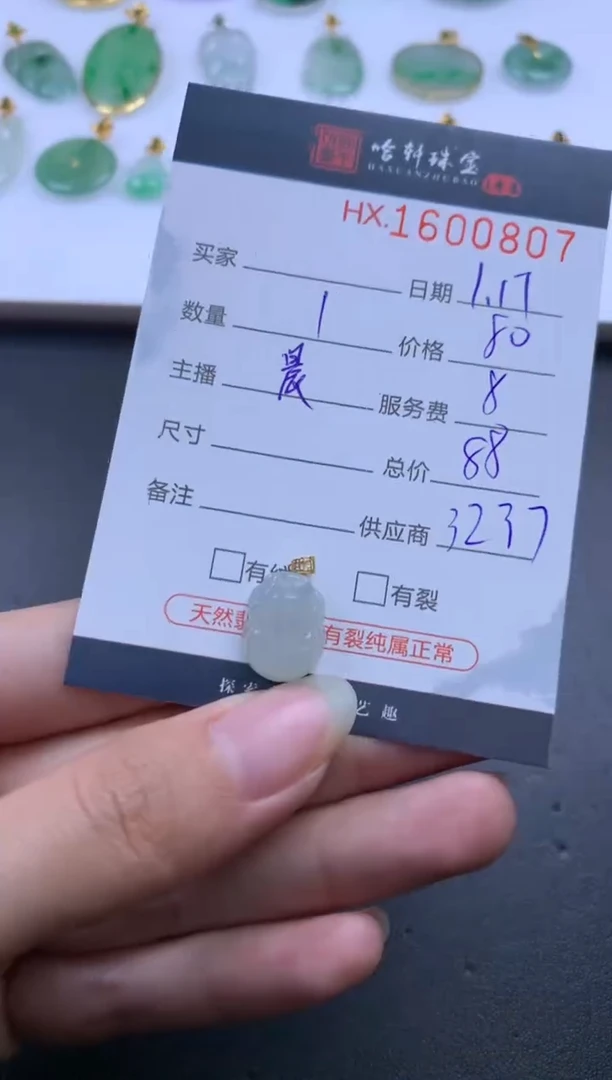 哈轩珠宝
HAXUANZHUBAO
HX.1600807
买家 日期 1.17
数量 1 价格 80
主播 晨 服务费 8
尺寸 总价 88
备注 供应商 3237
有 有裂
天然 有裂纯属正常
探 艺趣